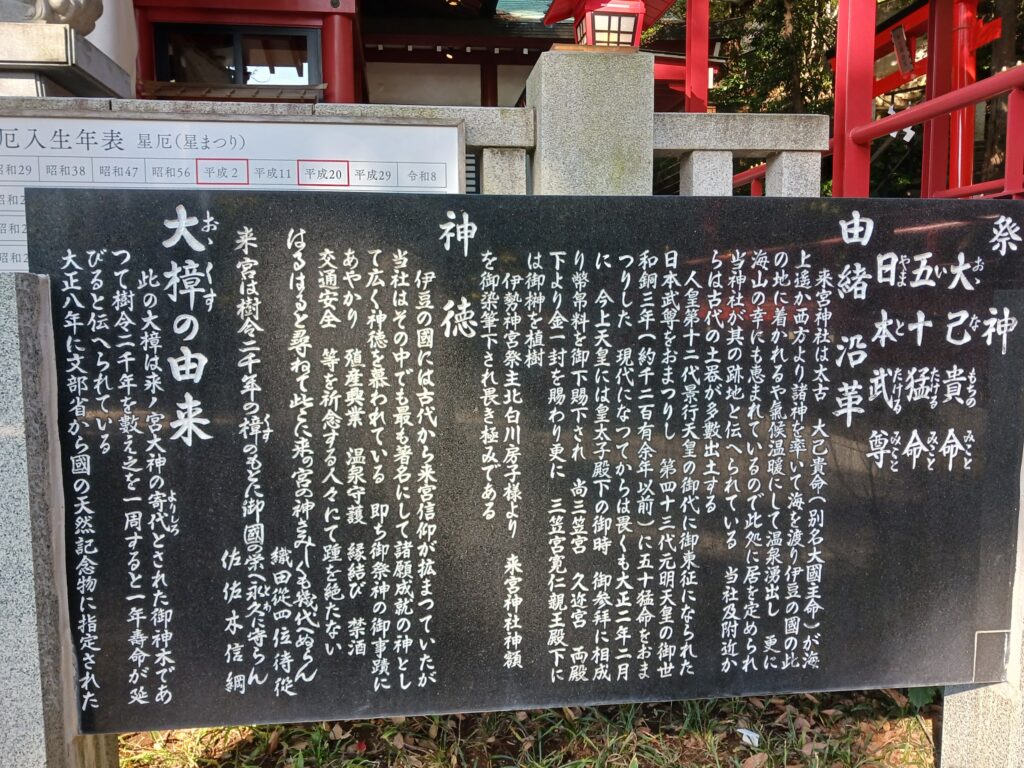 厄入生年表 星厄(星まつり)
昭和29 昭和38 昭和47 昭和56 平成2 平成11 平成20 平成29 令和8
祭神
大己貴命
おおなもちのみこと
五十猛命
いたけるみこと
日本武尊
やまとたけるみこと
由緒沿革
来宮神社は太古 大己貴命(別名大國主命)が海
上遥か西方より諸神を率いて海を渡り伊豆の國の此
の地に着かれるや氣候温暖にして温泉湧出し 更に
海山の幸にも恵まれているので此処に居を定められ
当神社が其の跡地と伝へられている 当社及附近か
らは古代の土器が多数出土する
人皇第十二代景行天皇の御代に御東征になられた
日本武尊をおまつりし 第四十三代元明天皇の御世
和銅三年(約千二百有余年以前)に五十猛命をおま
つりした 現代になつてからは畏くも大正二年二月
に 今上天皇には皇太子殿下の御時 御参拝に相成
り幣帛料を御下賜下され 尚三笠宮 久迩宮 両殿
下より金一封を賜わり更に 三笠宮寛仁親王殿下に
は御榊を植樹
伊勢神宮祭主北白川房子様より 来宮神社神額
を御染筆下され長き極みである
神徳
伊豆の國には古代から来宮信仰が拡まつていたが
当社はその中でも最も著名にして諸願成就の神とし
て広く神徳を慕われている 即ち御祭神の御事蹟に
あやかり 殖産興業 温泉守護 縁結び 禁酒
交通安全 等を祈念する人々にて踵を絶たない
はるばると尋ねて此とに来の宮の神さみくも幾代へぬらん
織田従四位侍従
来宮は樹令二千年の樟のもとに御國の栄へ永久に守らん
佐佐木信綱
大樟の由来
おゝくす
此の大樟は来ノ宮大神の寄代とされた御神木であ
よりしろ
つて樹令二千年を数え之を一周すると一年寿命が延
びると伝へられている
大正八年に文部省から國の天然記念物に指定された